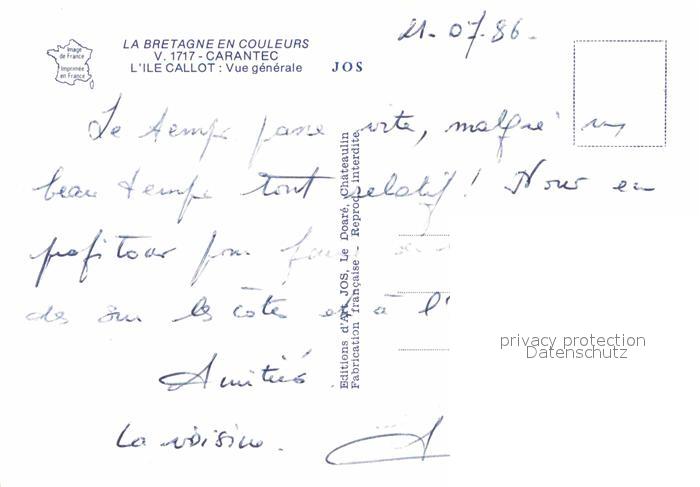 LA BRETAGNE EN COULEURS
V. 1717 - CARANTEC
L'ILE CALLOT : Vue générale
Image de France
Imprimée en France
JOS
21.07.86.
Le temps passe vite, malgré un
beau temps tout relatif ! Nous en
profitons pour
des sur les côtes et à l'
Amitiés.
La voisine.
Editions d'Art JOS, Le Doaré, Châteaulin
Fabrication française - Reprod. interdite
privacy protection
Datenschutz